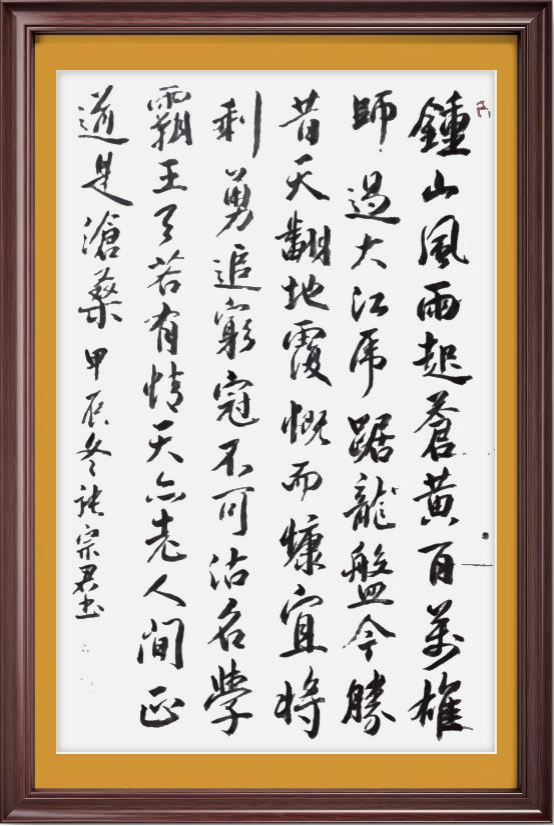 鍾山風雨起蒼黃百萬雄
師過大江虎踞龍盤今勝
昔天翻地覆慨而慷宜將
剩勇追窮寇不可沽名學
霸王天若有情天亦老人間正
道是滄桑甲辰冬張宗君書